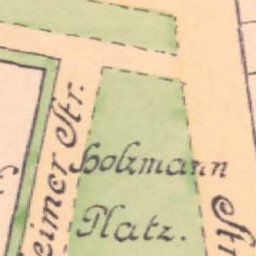 eimer Str.
Holzmann
Platz.
Str